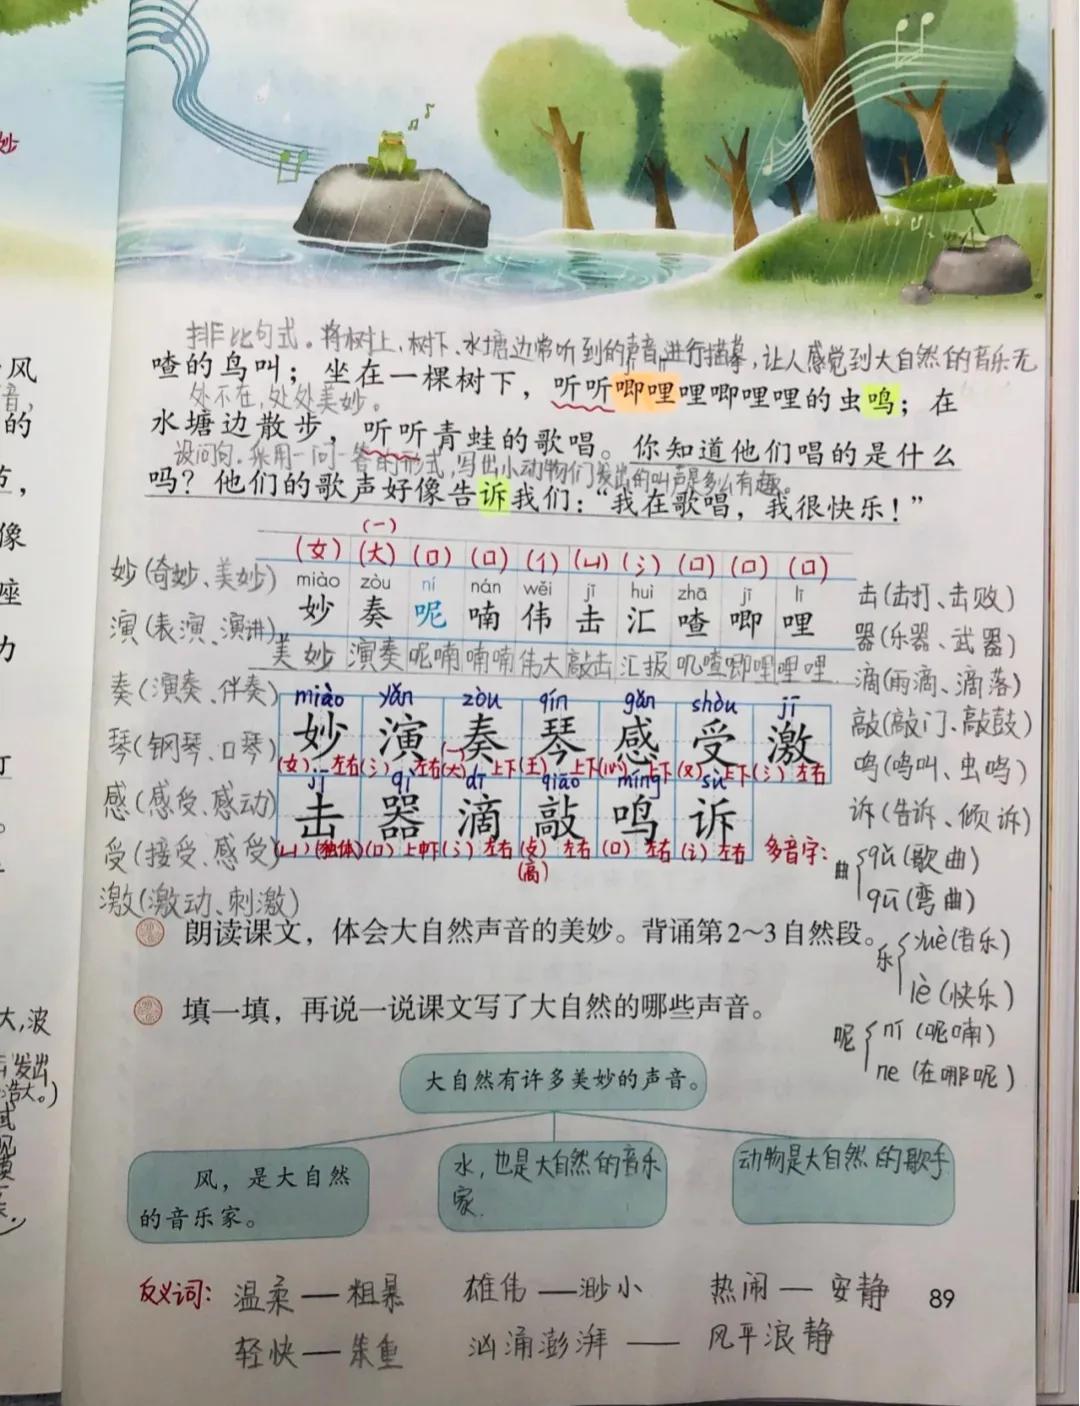 妙
风
音,
的
节,
像
座
力
大,波
发出
浩大。)
排比句式。将树上、树下、水塘边常听到的声音进行描摹,让人感觉到大自然的音乐无
喳的鸟叫；坐在一棵树下，听听唧哩哩唧哩哩的虫鸣；在
处不在,处处美妙。
水塘边散步，听听青蛙的歌唱。你知道他们唱的是什么
设问句。采用一问一答的形式,写出小动物们发出的叫声是多么有趣。
吗？他们的歌声好像告诉我们：“我在歌唱，我很快乐！”
(一)
(女) (大) (口) (口) (亻) (山) (氵) (口) (口) (口)
miào zòu ní nán wěi jī huì zhā jī lī
妙 奏 呢 喃 伟 击 汇 喳 唧 哩
美妙 演奏 呢喃 喃喃 伟大 敲击 汇报 叽喳 唧哩 哩哩
妙(奇妙、美妙)
演(表演、演讲)
奏(演奏、伴奏)
琴(钢琴、口琴)
感(感受、感动)
受(接受、感受)
激(激动、刺激)
miào yǎn zòu qín gǎn shòu jī
妙 演 奏 琴 感 受 激
(女) 左右 (氵) 左右 (一)(大) 上下 (王) 上下 (心) 上下 (又) 上下 (氵) 左右
jī qì dī qiāo míng sù
击 器 滴 敲 鸣 诉
(山) (独体) (口) 上中下 (氵) 左右 (攴) 左右 (口) 左右 (讠) 左右
(高)
击(击打、击败)
器(乐器、武器)
滴(雨滴、滴落)
敲(敲门、敲鼓)
鸣(鸣叫、虫鸣)
诉(告诉、倾诉)
多音字:
曲 qǔ(歌曲)
qū(弯曲)
乐 yuè(音乐)
lè(快乐)
呢 ní(呢喃)
ne(在哪呢)
朗读课文，体会大自然声音的美妙。背诵第2～3自然段。
填一填，再说一说课文写了大自然的哪些声音。
大自然有许多美妙的声音。
风，是大自然
的音乐家。
水,也是大自然的音乐
家.
动物是大自然的歌手
反义词: 温柔—粗暴 雄伟—渺小 热闹—安静
轻快—笨重 汹涌澎湃——风平浪静
89